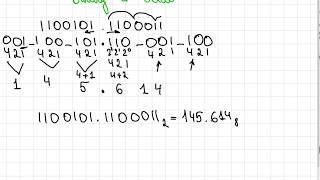 1100101.1100011
001-100-101.110-001-100
421 421 421 2²2¹2⁰ 421 421
421
4+1 4+2
1 4 5 . 6 1 4
1100101.1100011₂ = 145.614₈